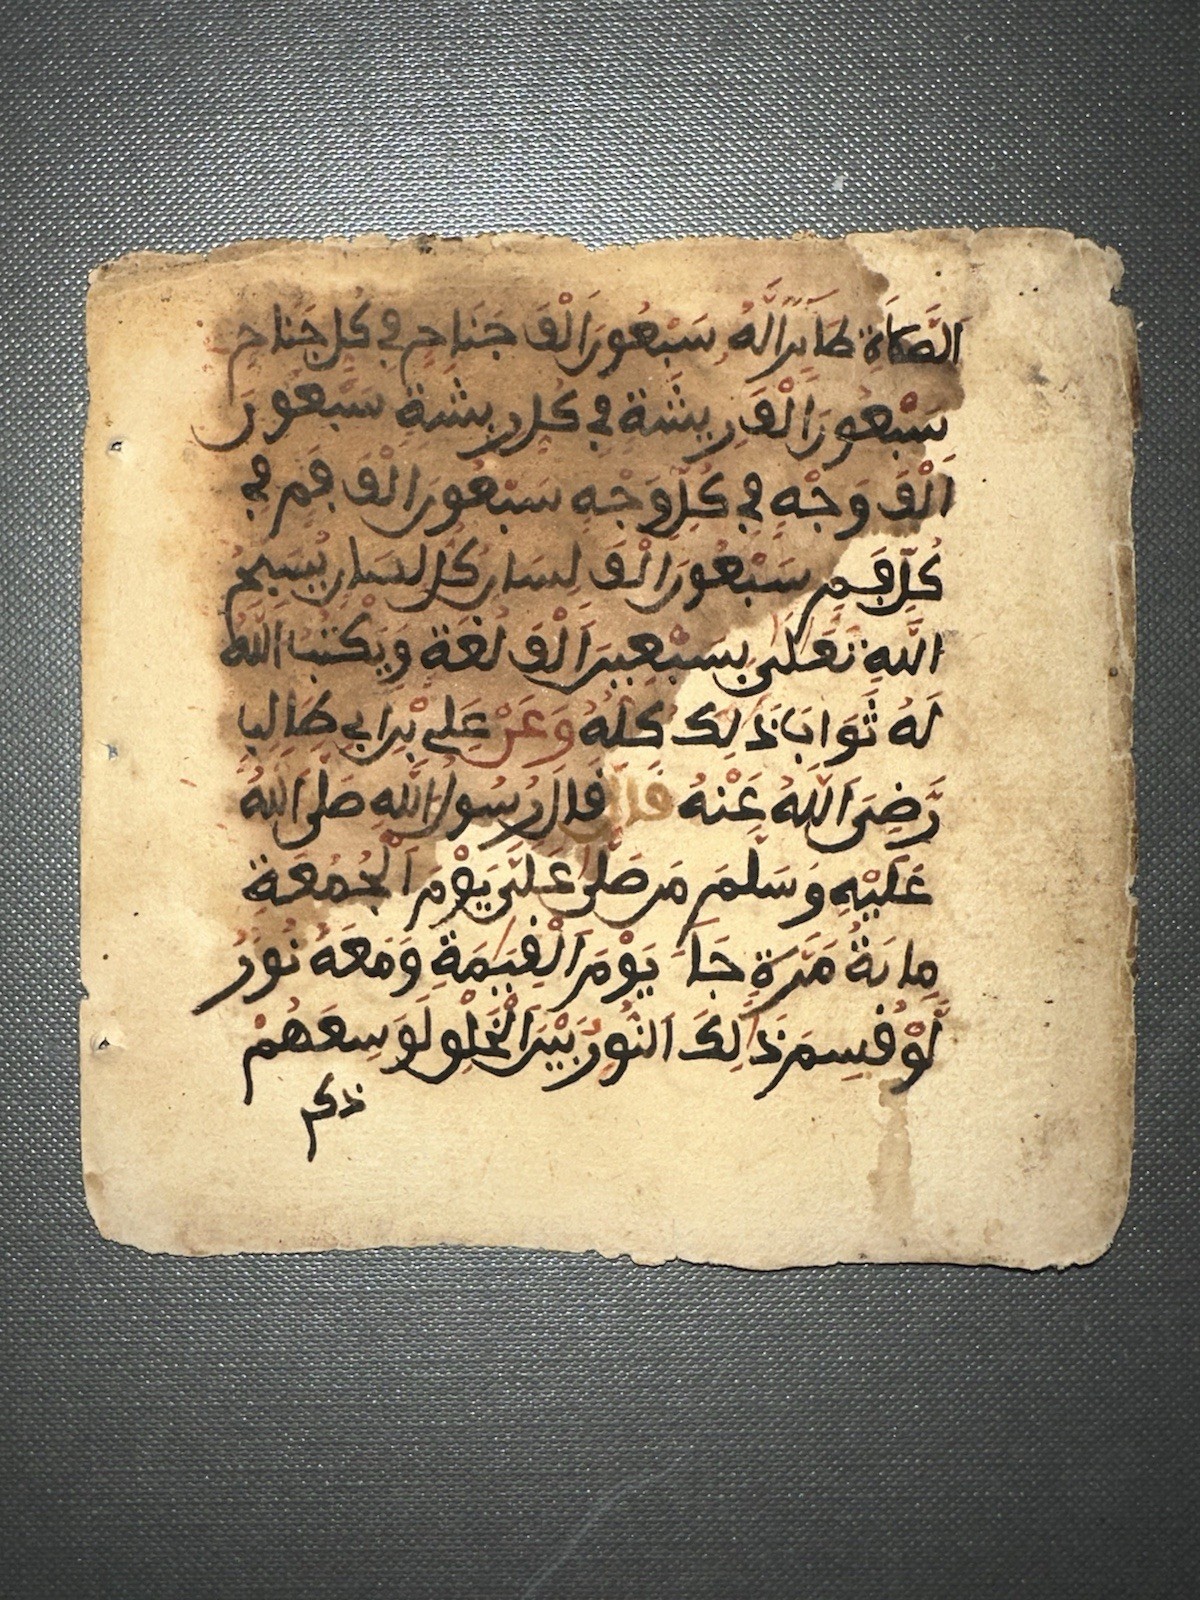 الصَّلَاةِ طَايِرًا لَهُ سَبْعُونَ أَلْفَ جَنَاحٍ فِي كُلِّ جَنَاحٍ
سَبْعُونَ أَلْفَ رِيشَةٍ فِي كُلِّ رِيشَةٍ سَبْعُونَ
أَلْفَ وَجْهٍ فِي كُلِّ وَجْهٍ سَبْعُونَ أَلْفَ فَمٍ فِي
كُلِّ فَمٍ سَبْعُونَ أَلْفَ لِسَانٍ كُلُّ لِسَانٍ يُسَبِّحُ
اللَّهَ تَعَلَى بِسَبْعِينَ أَلْفَ لُغَةٍ وَيَكْتُبُ اللَّهُ
لَهُ ثَوَابَ ذَلِكَ كُلِّهِ وَعَنْ عَلِي بْنِ أَبِي طَالِبٍ
رَضِيَ اللَّهُ عَنْهُ قال قَالَ رَسُولُ اللَّهِ صَلَّى اللَّهُ
عَلَيْهِ وَسَلَّمَ مَن صَلَّى عَلَيَّ يَوْمَ الْجُمُعَةِ
مِايَةَ مَرَّةٍ جَاءَ يَوْمَ الْقِيَمَةِ وَمَعَهُ نُورٌ
لَّوْ قُسِمَ ذَلِكَ النُّورُ بَيْنَ الْخَلْقِ لَوَسِعَهُمْ
ذكر